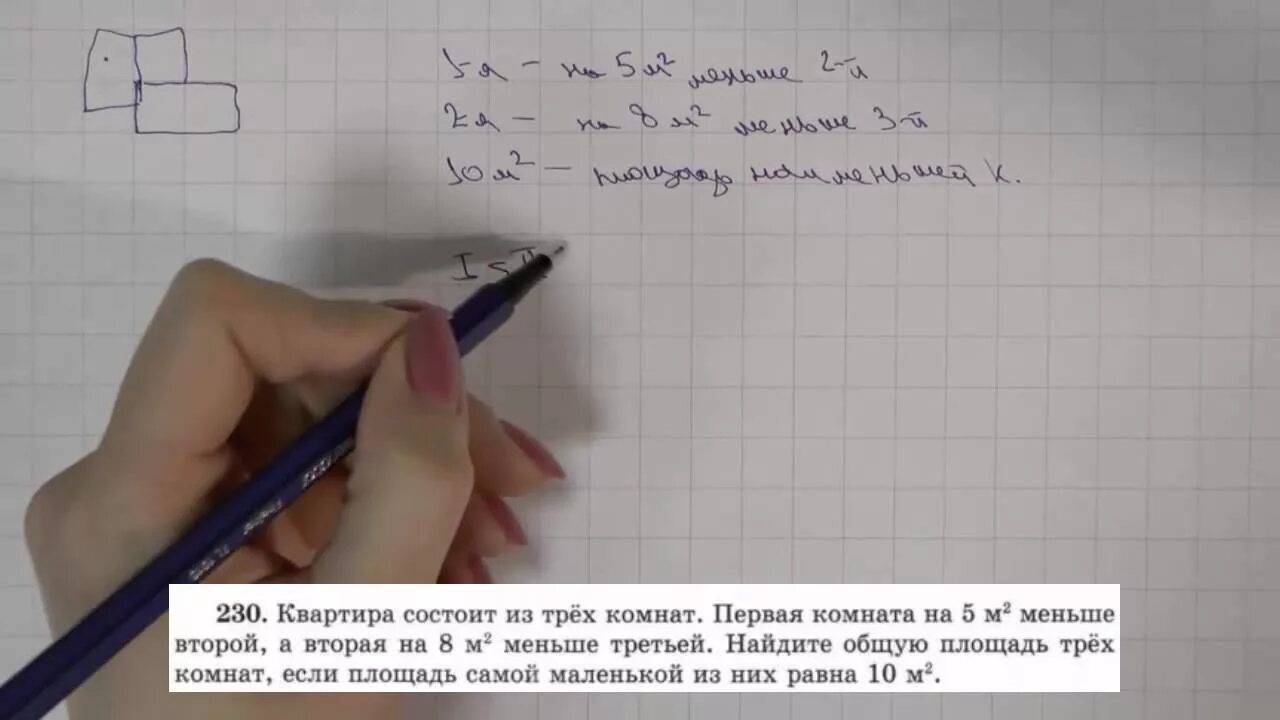 1я – на 5 м² меньше 2-й
2я – на 8 м² меньше 3-й
10 м² – площадь наименьшей к.
I < II
230. Квартира состоит из трёх комнат. Первая комната на 5 м² меньше
второй, а вторая на 8 м² меньше третьей. Найдите общую площадь трёх
комнат, если площадь самой маленькой из них равна 10 м².